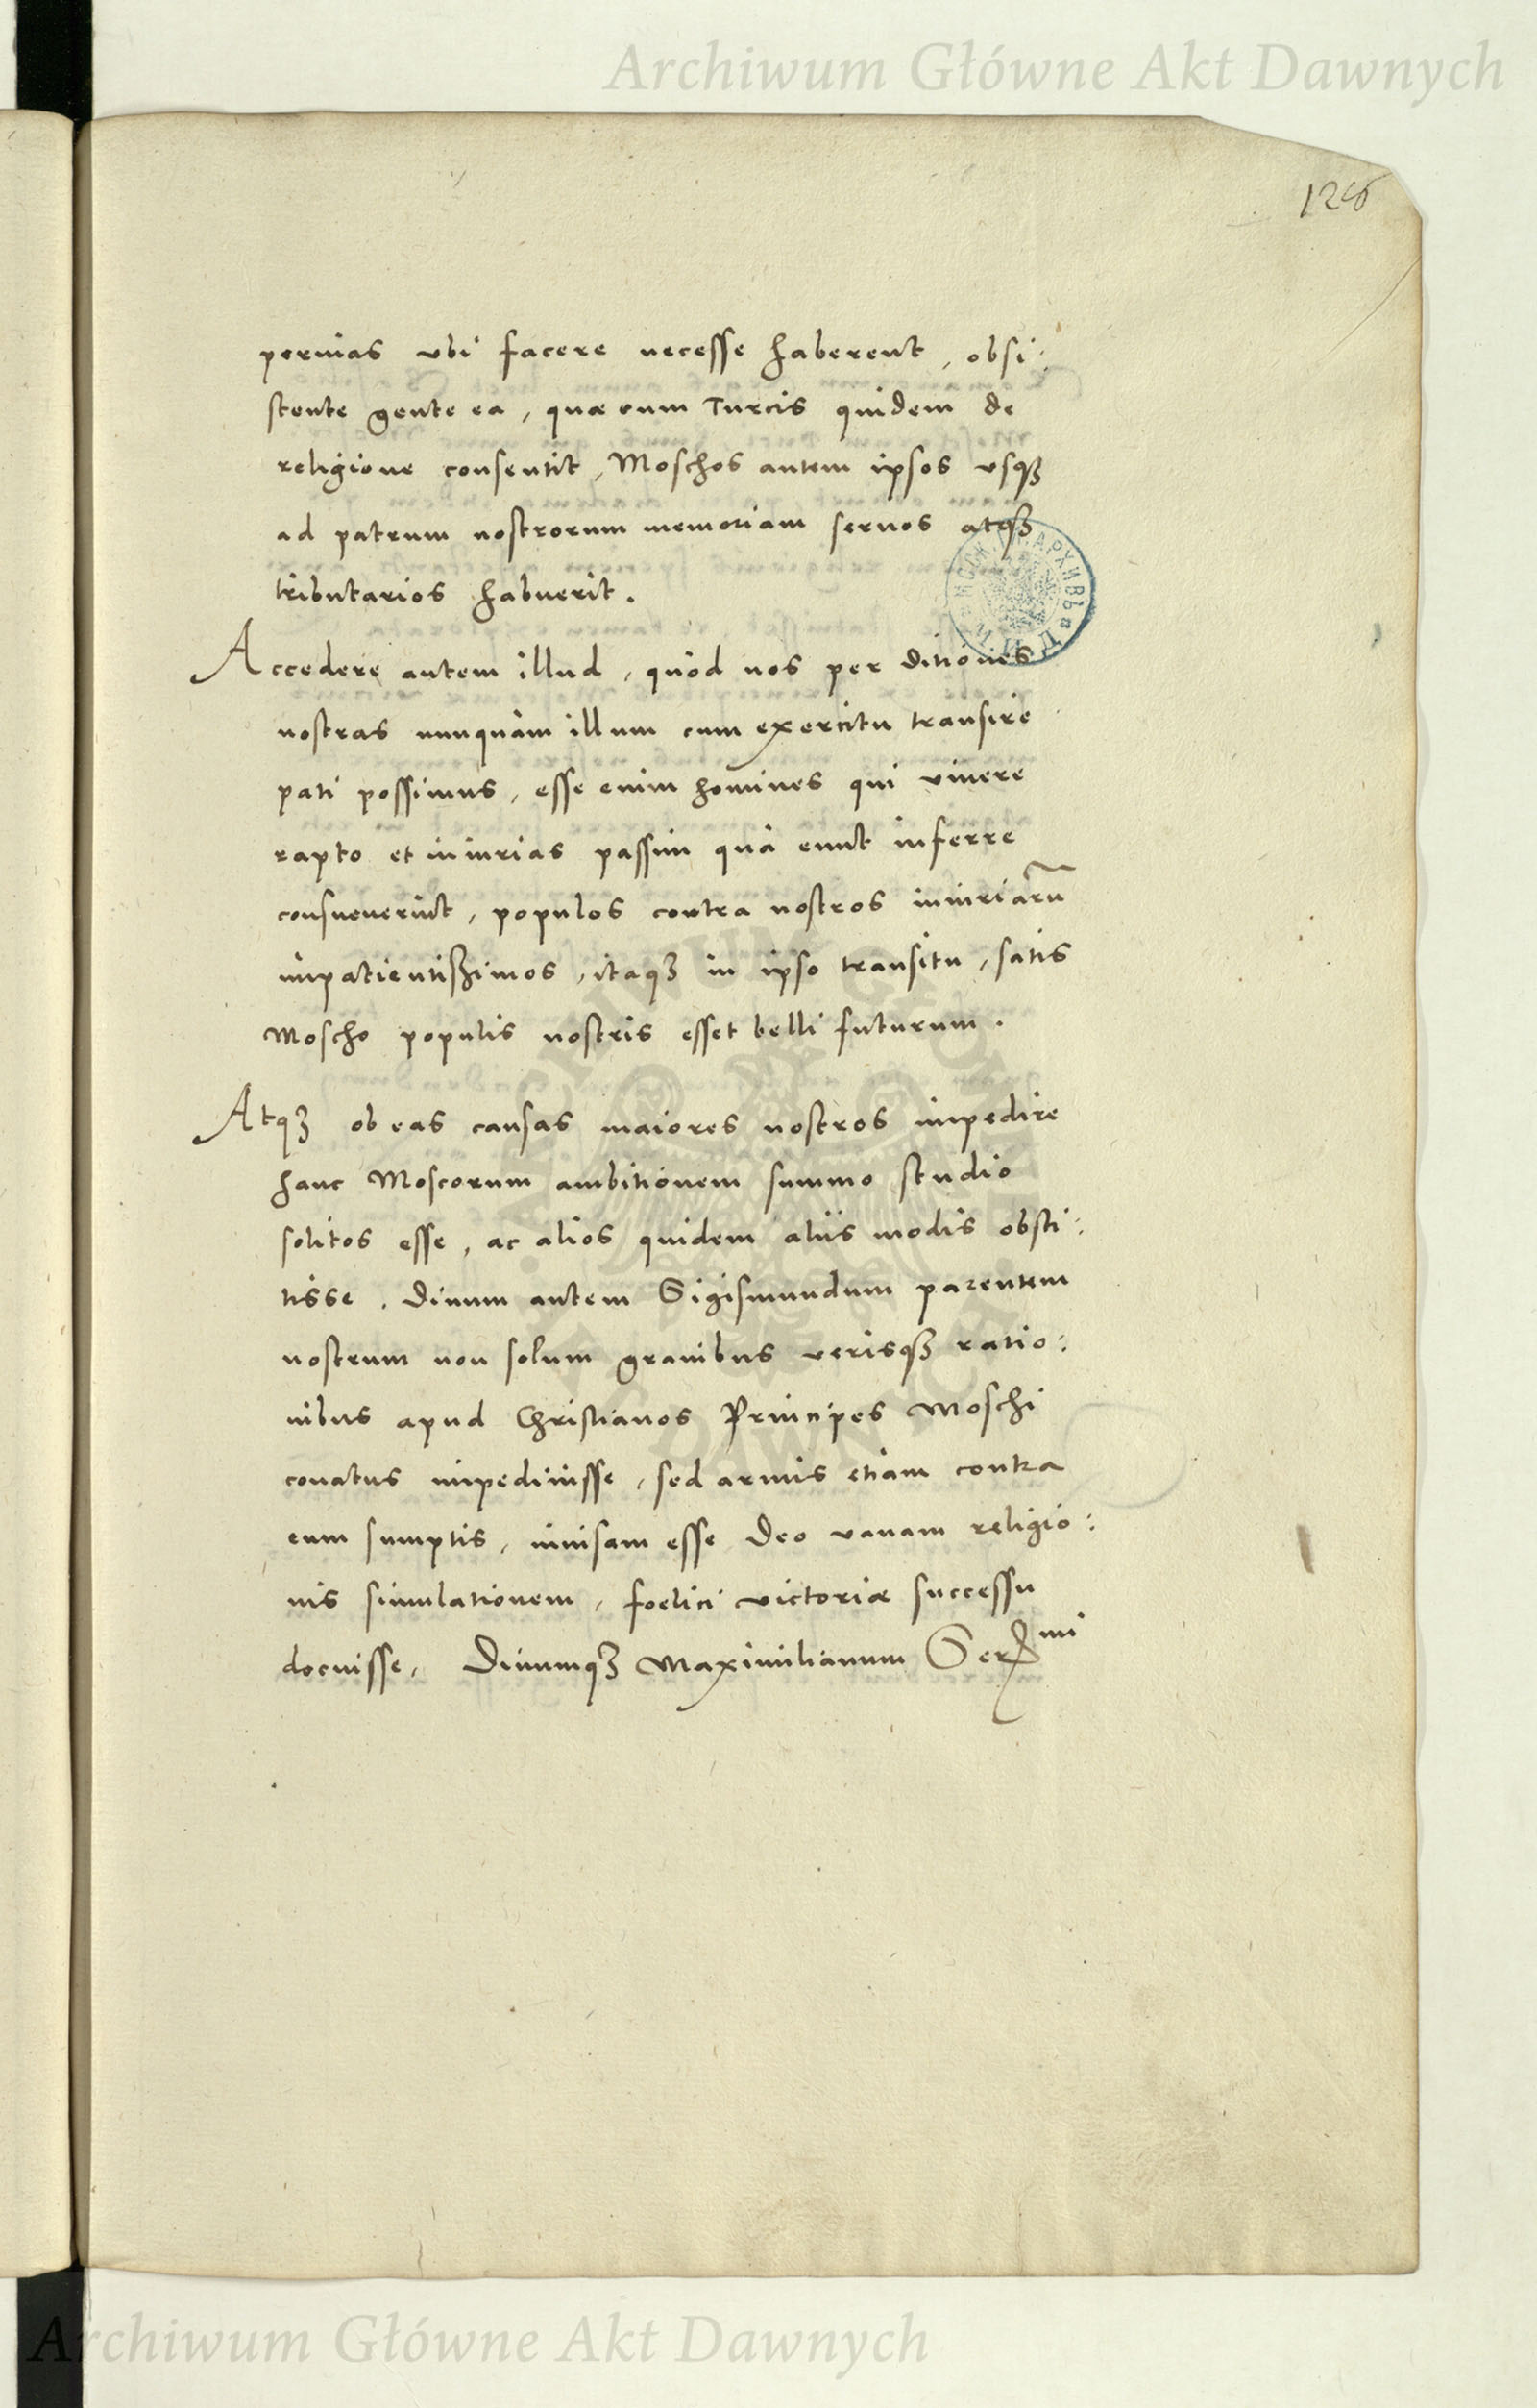 Archiwum Główne Akt Dawnych
126
pervias vbi facere necesse haberent, obsi:
stente gente ea, quæ cum Turcis quidem de
religione consentit, Moschos autem ipsos vsqꝫ
ad patrum nostrorum memoriam seruos atqꝫ
tributarios habuerit.
Accedere autem illud, quòd nos per ditiones
nostras nunquàm illum cum exercitu transire
pati possimus, esse enim homines qui viuere
rapto et iniurias passim quà eunt inferre
consueuerint, populos contra nostros iniuriarũ
impatientißimos, itaqꝫ in ipso transitu, satis
Moscho populis nostris esset belli futurum.
Atqꝫ ob eas causas maiores nostros impedire
hanc Moscorum ambitionem summo studio
solitos esse, ac alios quidem aliis modis obsti:
tisse. Diuum autem Sigismundum parentem
nostrum non solum grauibus verisqꝫ ratio:
nibus apud Christianos Principes Moschi
conatus impediuisse, sed armis etiam contra
eum sumptis, inuisam esse Deo vanam religio:
nis simulationem, foelici victoriæ successu
docuisse, Diuumqꝫ Maximilianum Serᵐⁱ
Archiwum Główne Akt Dawnych